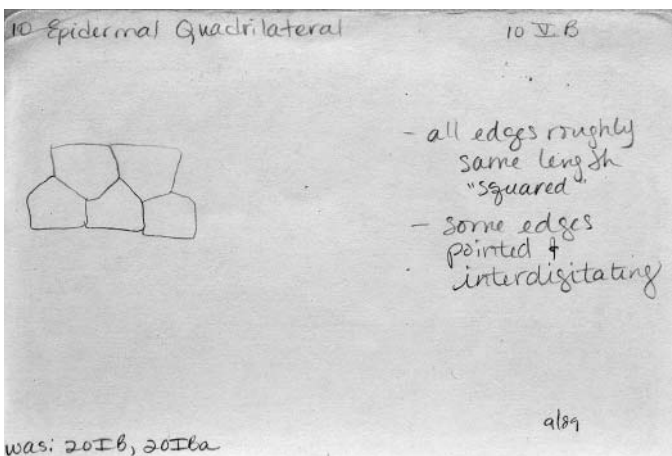 10 Epidermal Quadrilateral
10 V B
- all edges roughly
same length
"squared"
- some edges
pointed &
interdigitating
9/89
was: 20IB, 20IBa